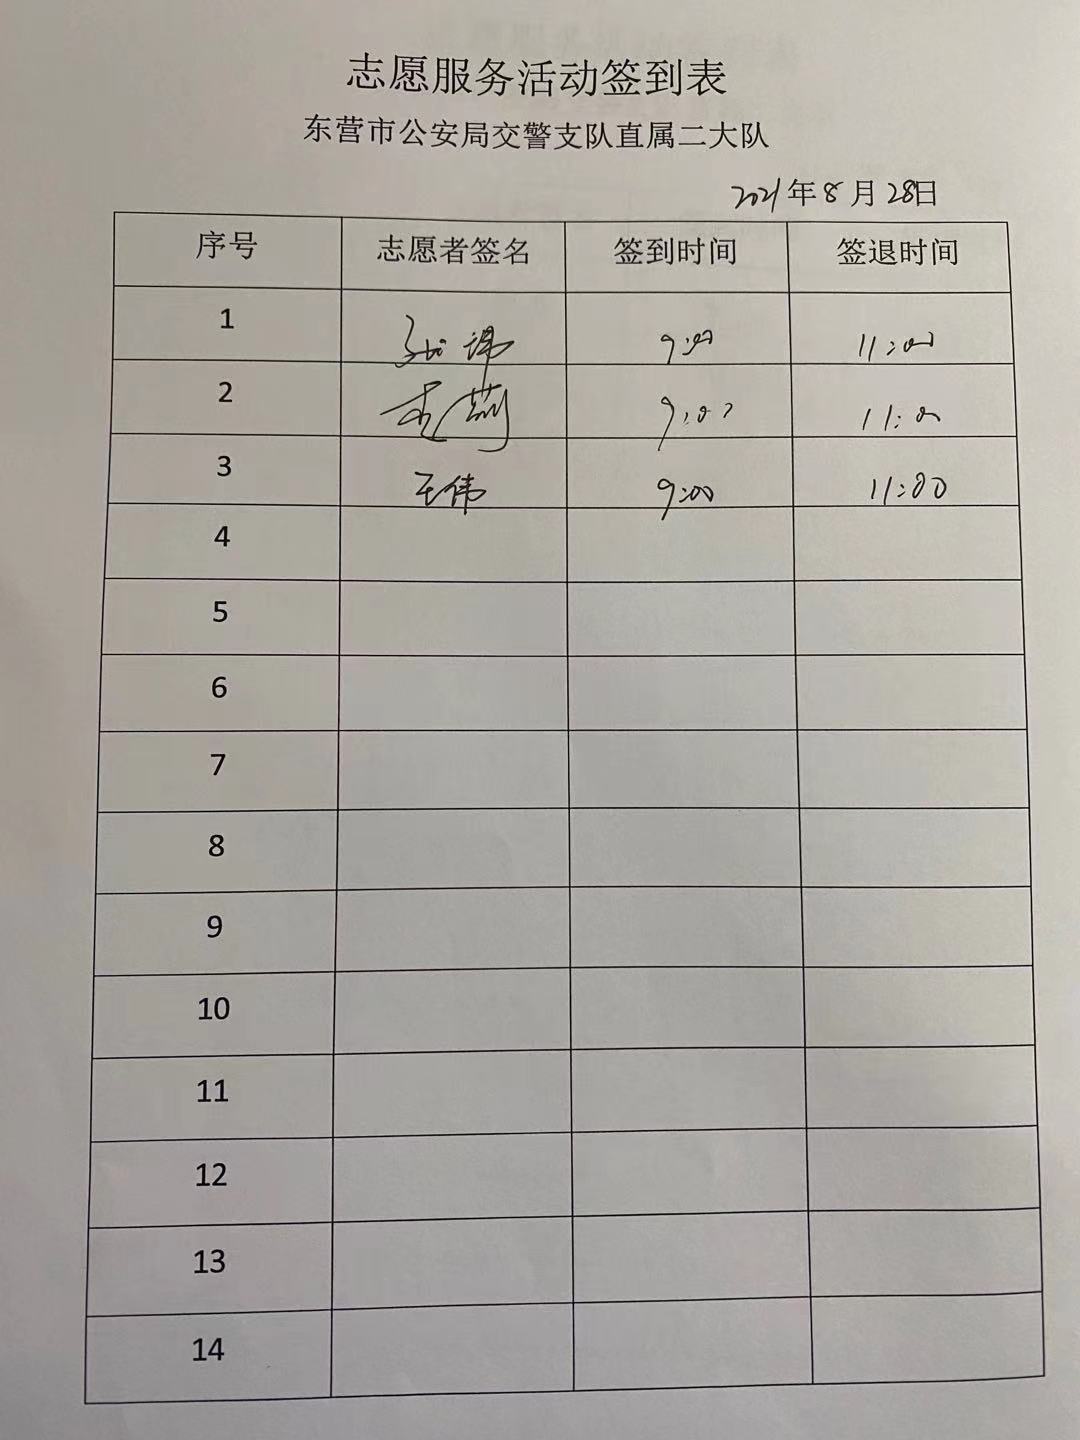 志愿服务活动签到表
东营市公安局交警支队直属二大队
2021年8月28日
序号 志愿者签名 签到时间 签退时间
1 9:00 11:00
2 9:00 11:00
3 王伟 9:00 11:00
4
5
6
7
8
9
10
11
12
13
14